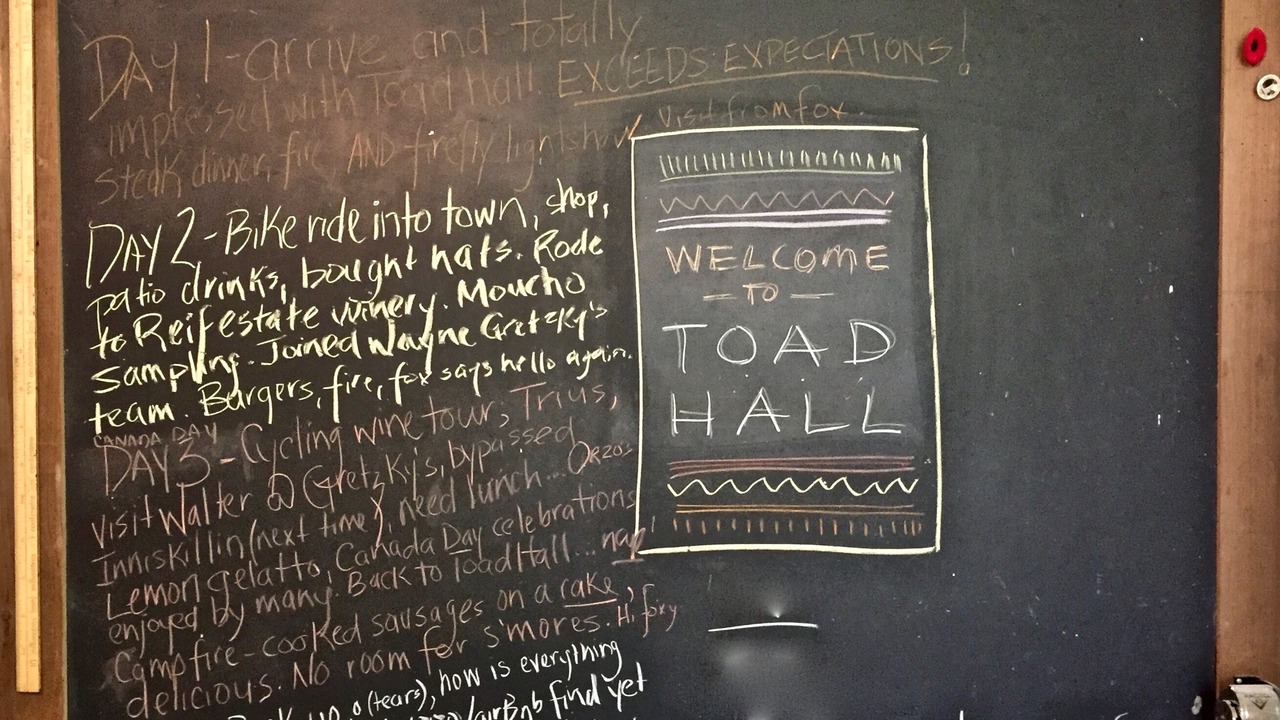 DAY 1-arrive and totally
impressed with Toad Hall. EXCEEDS EXPECTATIONS!
steak dinner, fire AND firefly lightshow visit from fox
DAY 2-Bike ride into town, shop,
patio drinks, bought hats. Rode
to Reif estate winery. Moucho
sampling. Joined Wayne Gretzky's
team. Burgers, fire, fox says hello again.
CANADA DAY
DAY 3-Cycling wine tour, Trius,
visit Walter @ Gretzky's, bypassed
Inniskillin (next time), need lunch... Orzo's
Lemon gelatto, Canada Day celebrations
enjoyed by many. Back to Toad Hall... nap!
Campfire-cooked sausages on a rake,
delicious. No room for s'mores. Hi foxy
(tears), how is everything
/airBnb find yet
WELCOME
-TO-
TOAD
HALL